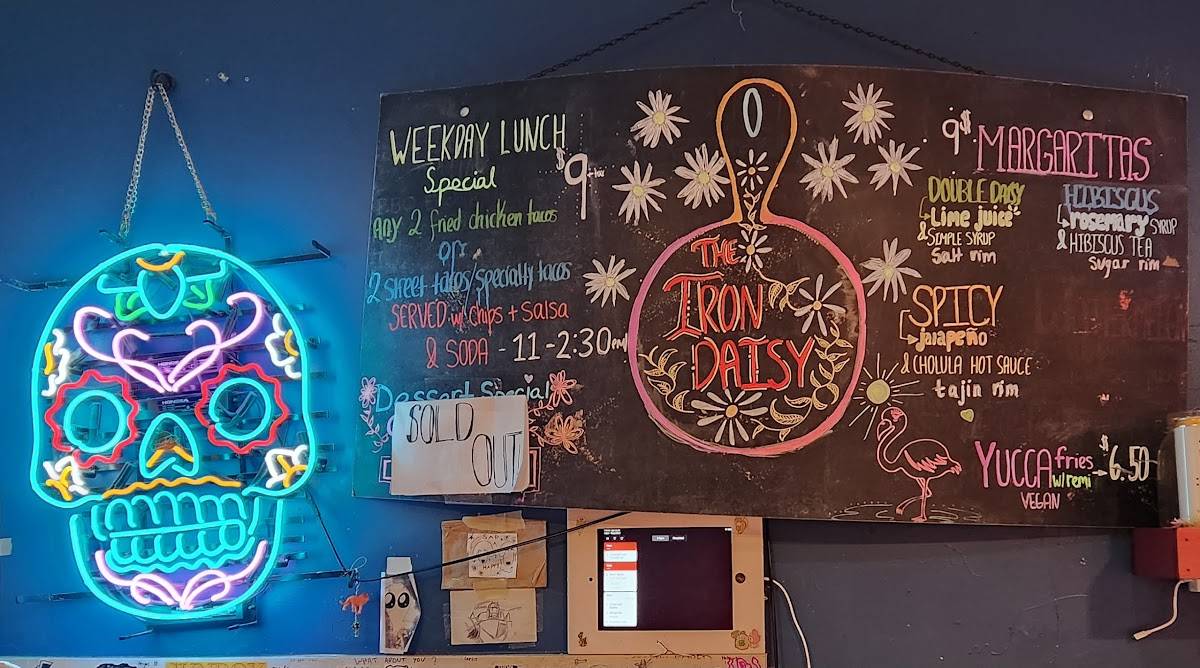 WEEKDAY LUNCH
Special
$9
Any 2 fried chicken tacos
or
2 Street tacos/specialty tacos
SERVED w/ Chips + Salsa
& SODA - 11-2:30pm
Dessert Special
SOLD
OUT
THE
IRON
DAISY
9$ MARGARITAS
DOUBLE DAISY
Lime juice
& SIMPLE SYRUP
Salt rim
HIBISCUS
rosemary SYRUP
& HIBISCUS TEA
Sugar rim
SPICY
jalapeño
& CHOLULA HOT SAUCE
tajin rim
YUCCA fries
w/ remi
$6.50
VEGAN
WHAT ABOUT YOU?